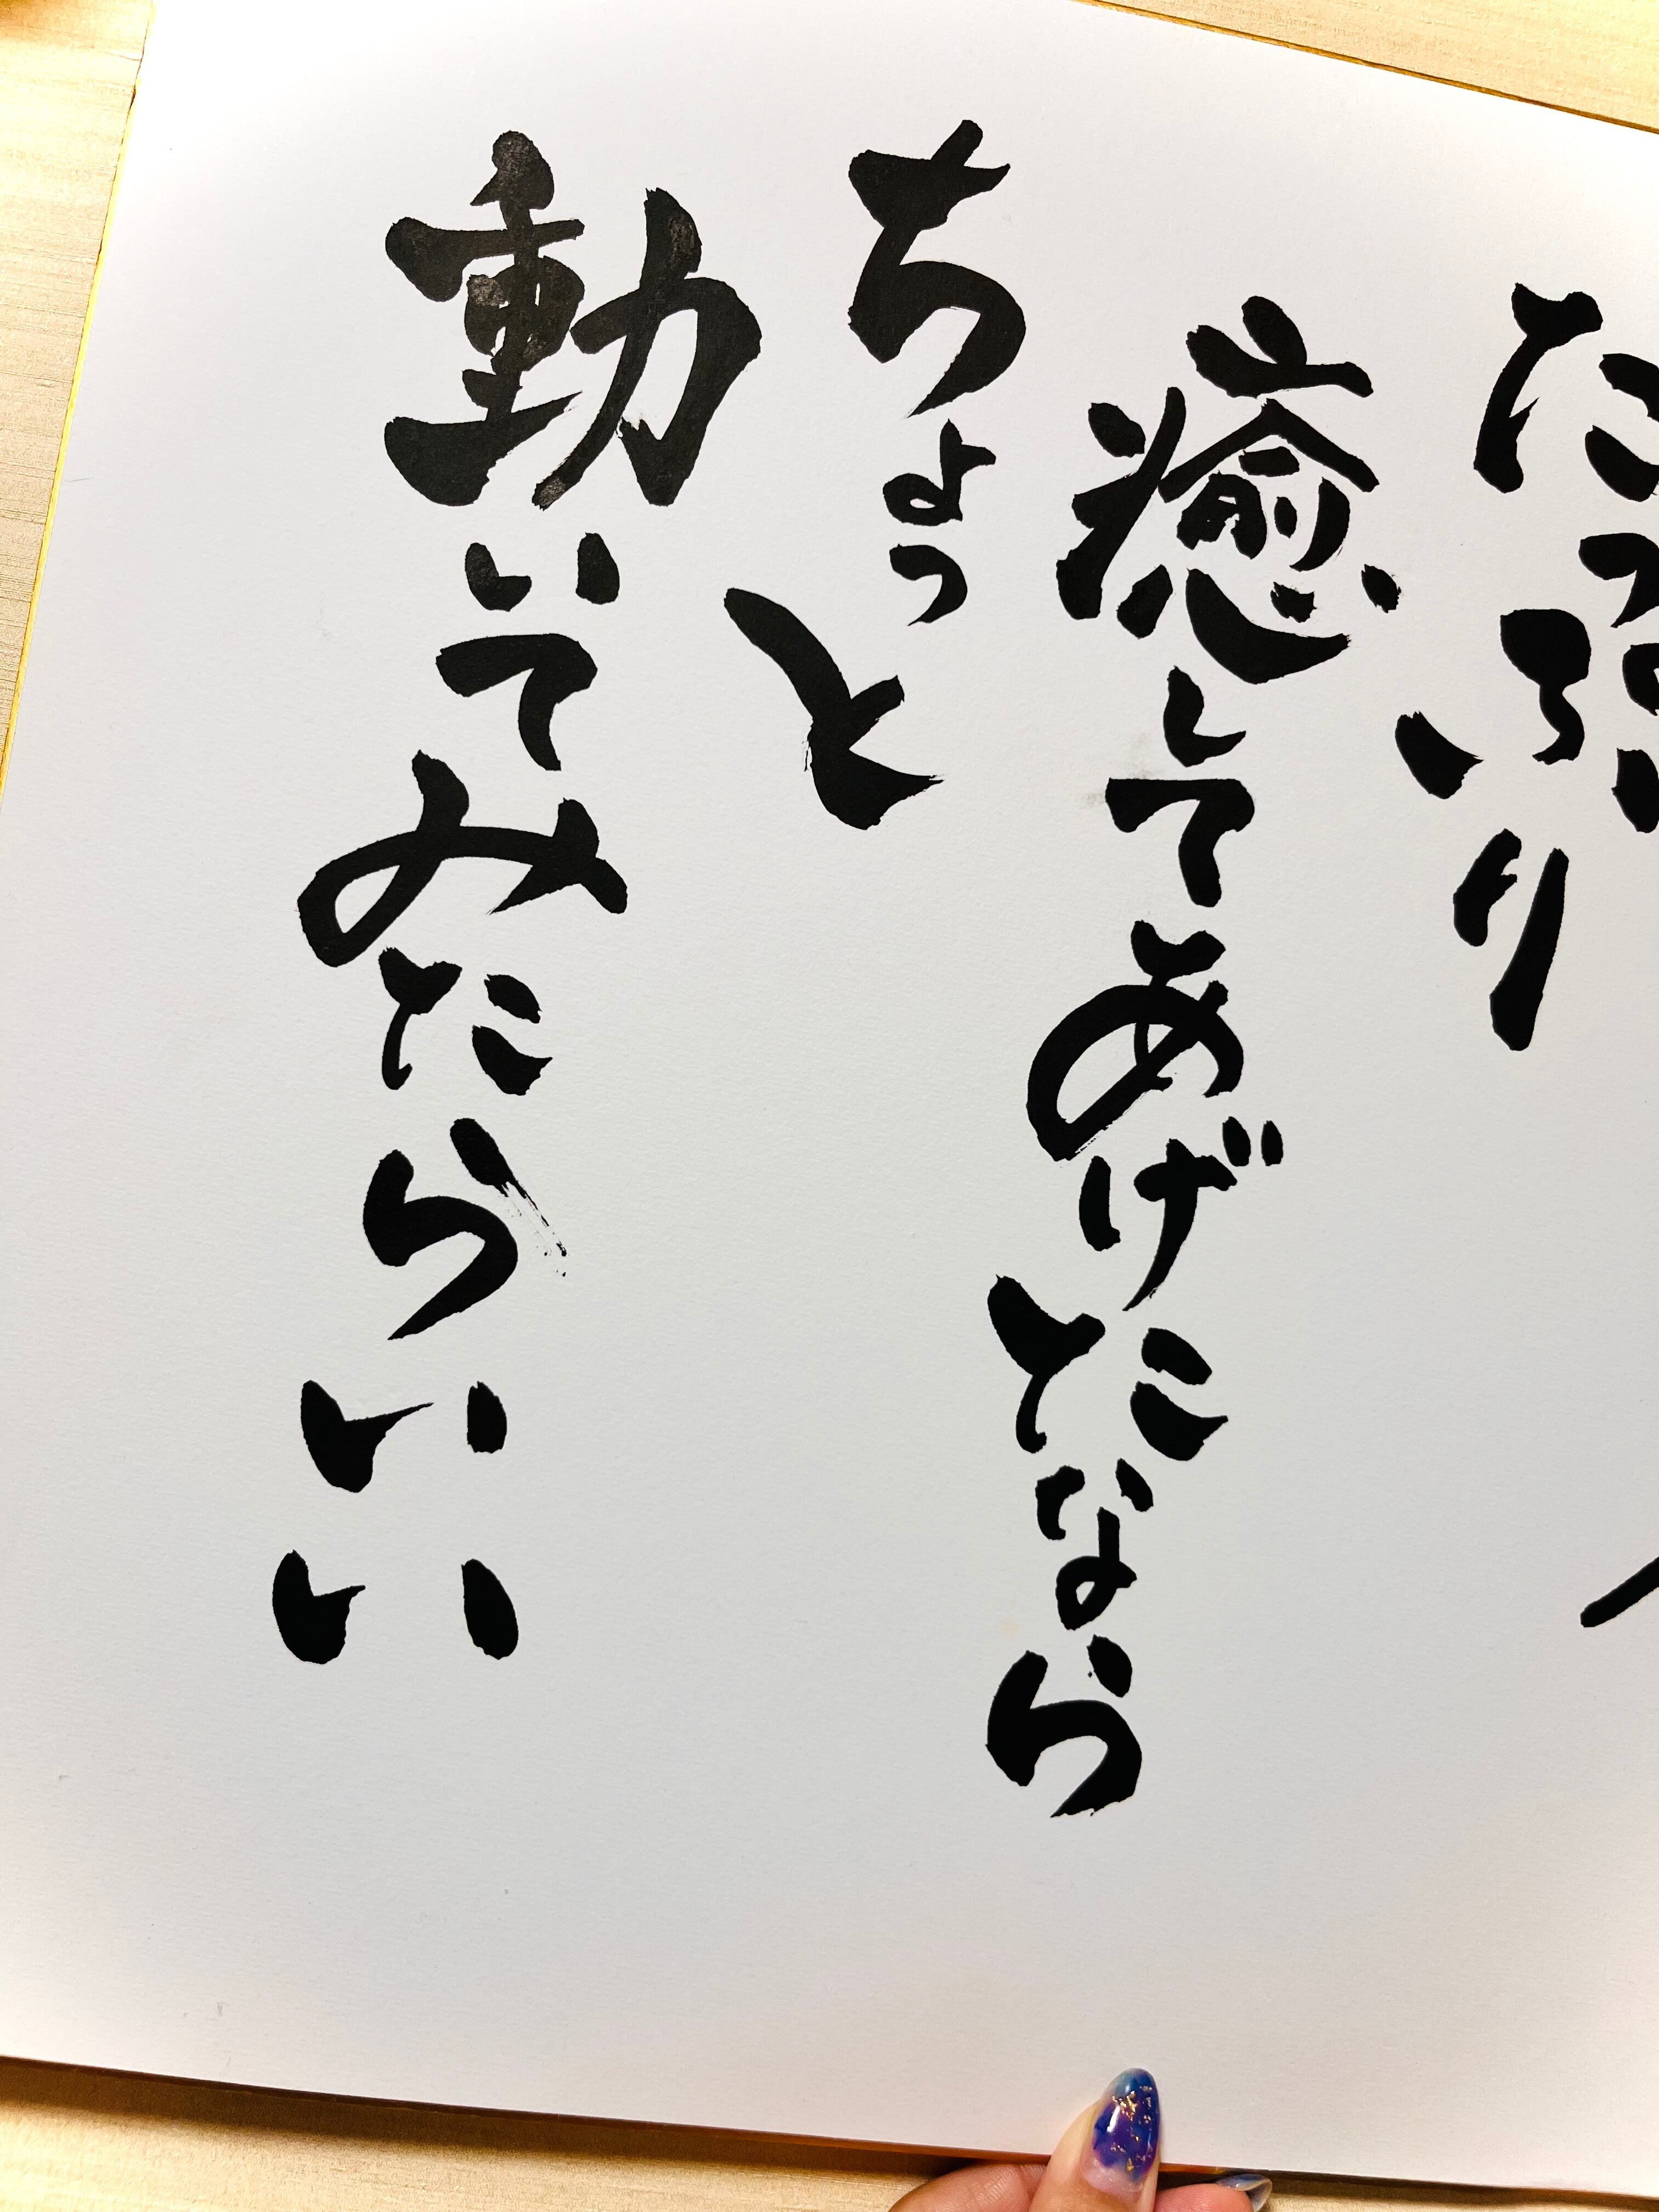 たっぷり
癒してあげたなら
ちょっと
動いてみたらいい